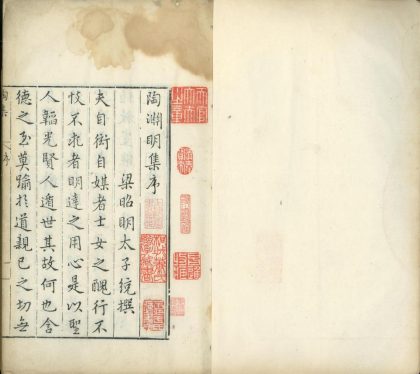 陶淵明集序
梁昭明太子統撰
夫自衒自媒者士女之醜行不
忮不求者明達之用心是以聖
人韜光賢人遁世其故何也含
德之至莫踰於道親已之切無